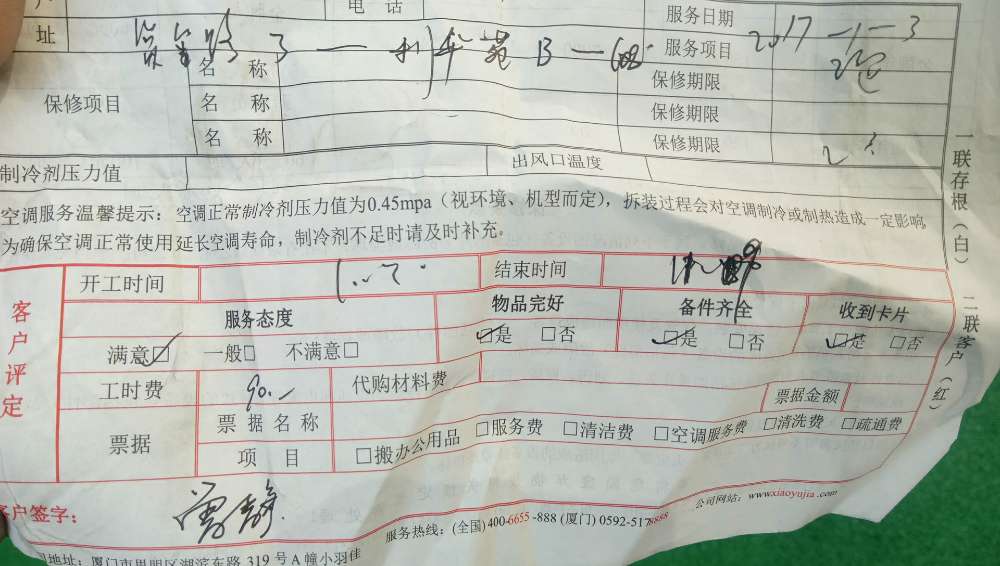 户
电 话
服务日期 2017-1-3
址
服务项目
名 称
保修期限
保修项目
名 称
保修期限
名 称
保修期限
制冷剂压力值
出风口温度
空调服务温馨提示：空调正常制冷剂压力值为0.45mpa（视环境、机型而定），拆装过程会对空调制冷或制热造成一定影响，
为确保空调正常使用延长空调寿命，制冷剂不足时请及时补充。
一联存根（白） 二联客户（红）
客户评定
开工时间
结束时间
服务态度
物品完好
备件齐全
收到卡片
满意☑ 一般□ 不满意□
☑是 □否
☑是 □否
☑是 □否
工时费 90.-
代购材料费
票据
票据名称
票据金额
项 目
□搬办公用品 □服务费 □清洁费 □空调服务费 □清洗费 □疏通费
客户签字：
服务热线：(全国)400-6655-888 (厦门) 0592-5178888
公司网站：www.xiaoyujia.com
地址：厦门市思明区湖滨东路 319 号A幢小羽佳